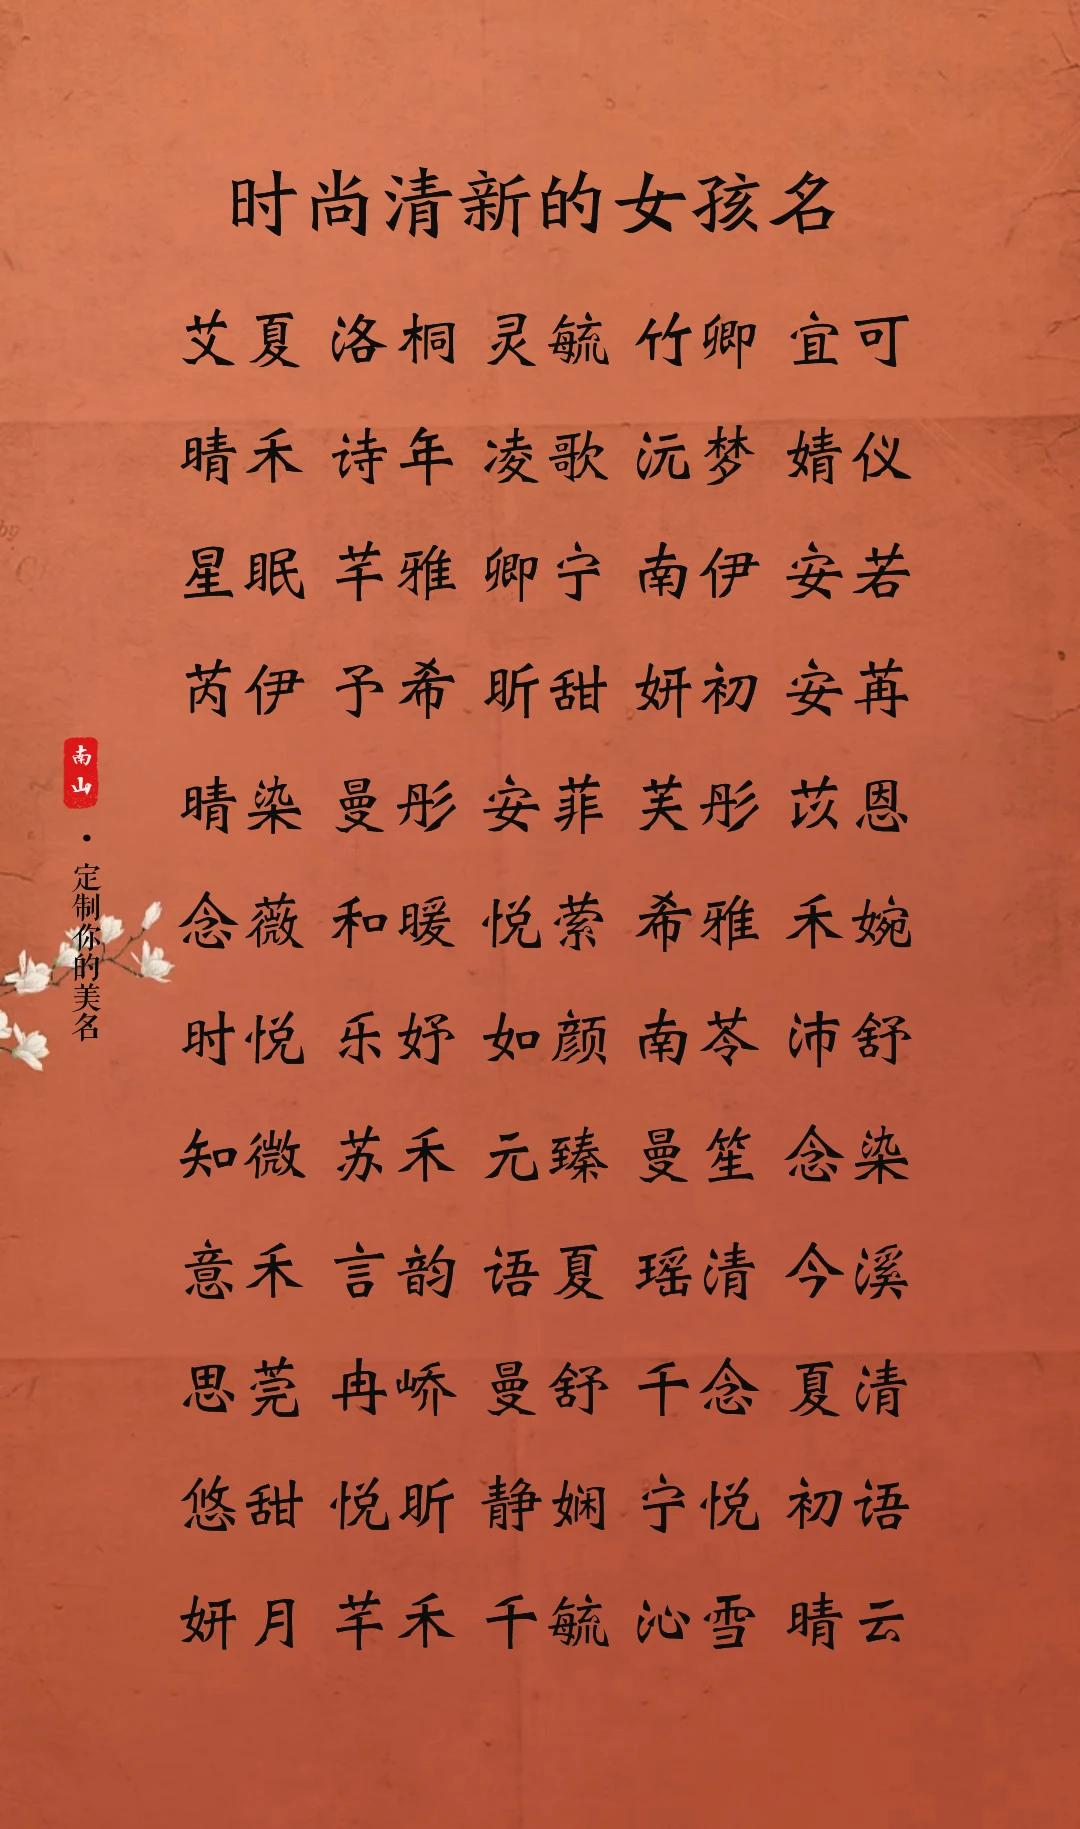 时尚清新的女孩名
艾夏 洛桐 灵毓 竹卿 宜可
晴禾 诗年 凌歌 沅梦 婧仪
星眠 芊雅 卿宁 南伊 安若
芮伊 予希 昕甜 妍初 安苒
晴染 曼彤 安菲 芙彤 苡恩
念薇 和暖 悦萦 希雅 禾婉
时悦 乐妤 如颜 南苓 沛舒
知微 苏禾 元臻 曼笙 念染
意禾 言韵 语夏 瑶清 今溪
思莞 冉峤 曼舒 千念 夏清
悠甜 悦昕 静娴 宁悦 初语
妍月 芊禾 千毓 沁雪 晴云
南山
·定制你的美名